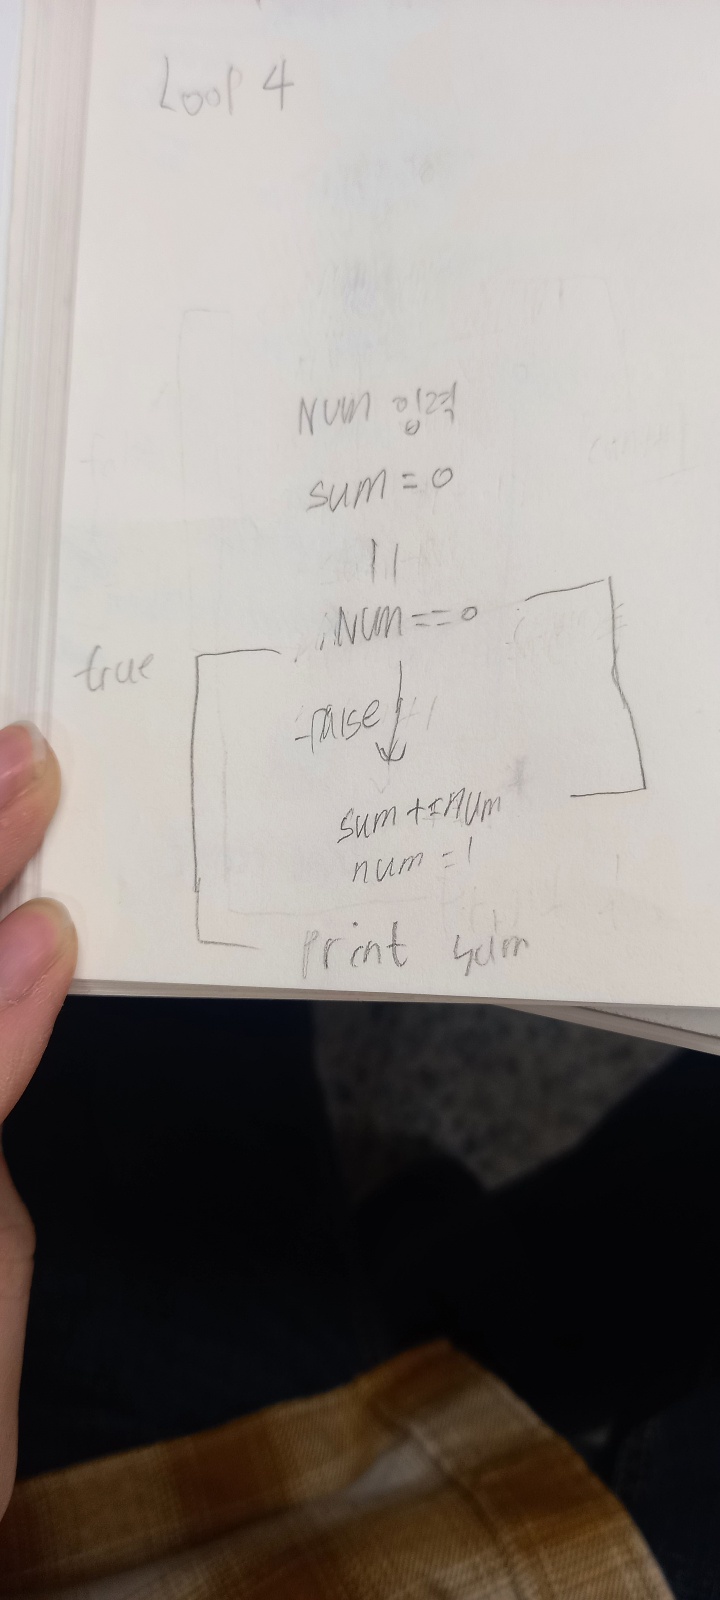 Loop 4
NUM 입력
sum = 0
NUM == 0
true
false
sum += num
num = 1
print sum